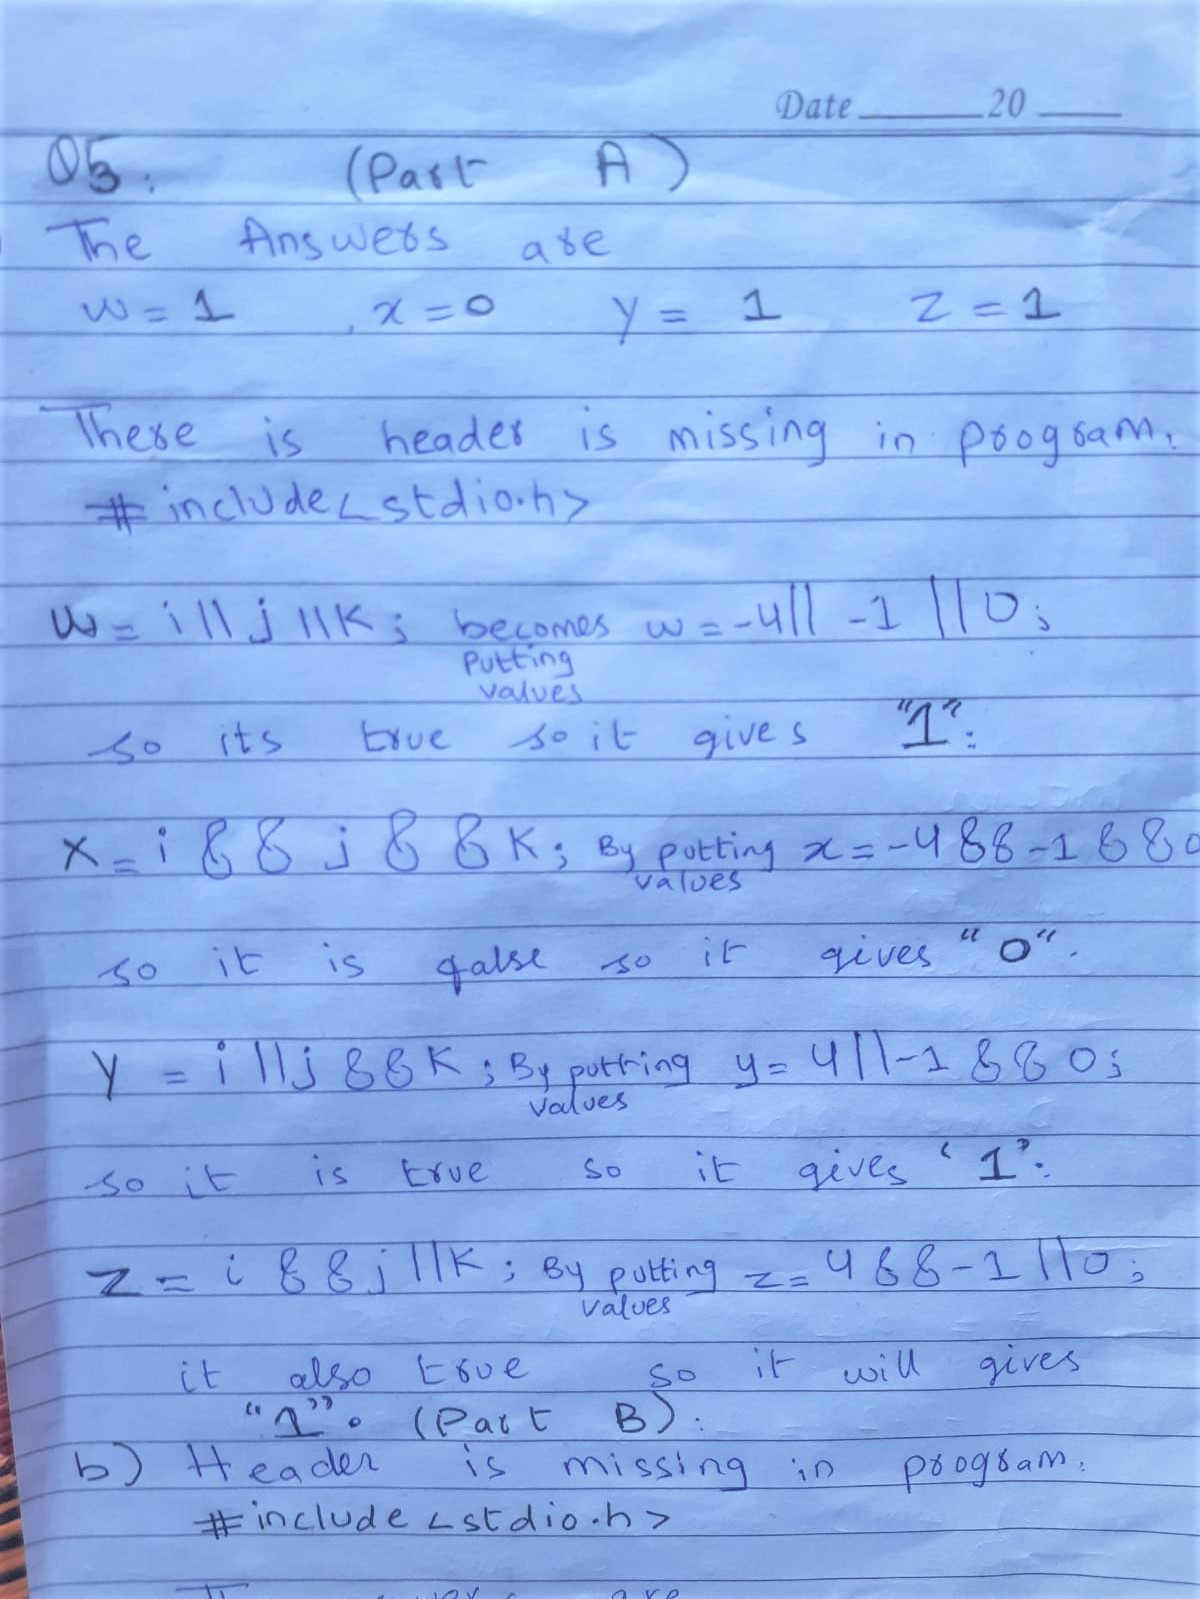 Date 20
Q5. (Part A)
The Answers are
w = 1 , x = 0 y = 1 z = 1
There is header is missing in program.
# include < stdio.h>
w = i || j || K ; becomes w = -4 || -1 || 0 ;
putting
values
so its true so it gives "1".
x = i && j && K ; By putting x = -4 && -1 && 0
values
so it is false so it gives "0".
y = i || j && K ; By putting y = 4 || -1 && 0 ;
values
so it is true so it gives '1'.
z = i && j || K ; By putting z = 4 && -1 || 0 ;
values
it also true so it will gives
"1". (Part B).
b) Header is missing in program.
# include < stdio.h >
are